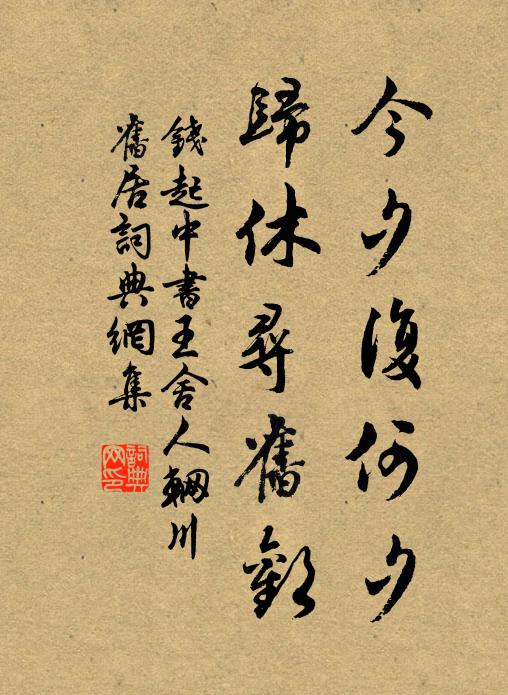 今夕復何夕
歸休尋舊歡
錢起中書王舍人輞川
舊居詞典網集
詞典網印